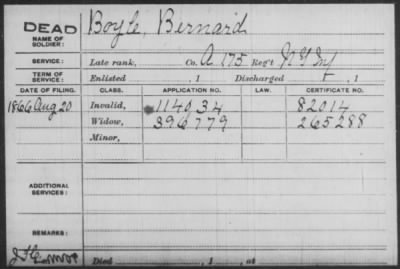 DEAD
NAME OF SOLDIER: Boyle, Bernard
SERVICE: Late rank, Co. A 175 Reg't N Y Inf
TERM OF SERVICE: Enlisted , 1 Discharged , 1
DATE OF FILING. CLASS. APPLICATION NO. LAW. CERTIFICATE NO.
1866 Aug 20 Invalid, 114034 82014
Widow, 396779 265288
Minor,
ADDITIONAL SERVICES:
REMARKS:
Died , 1 , at